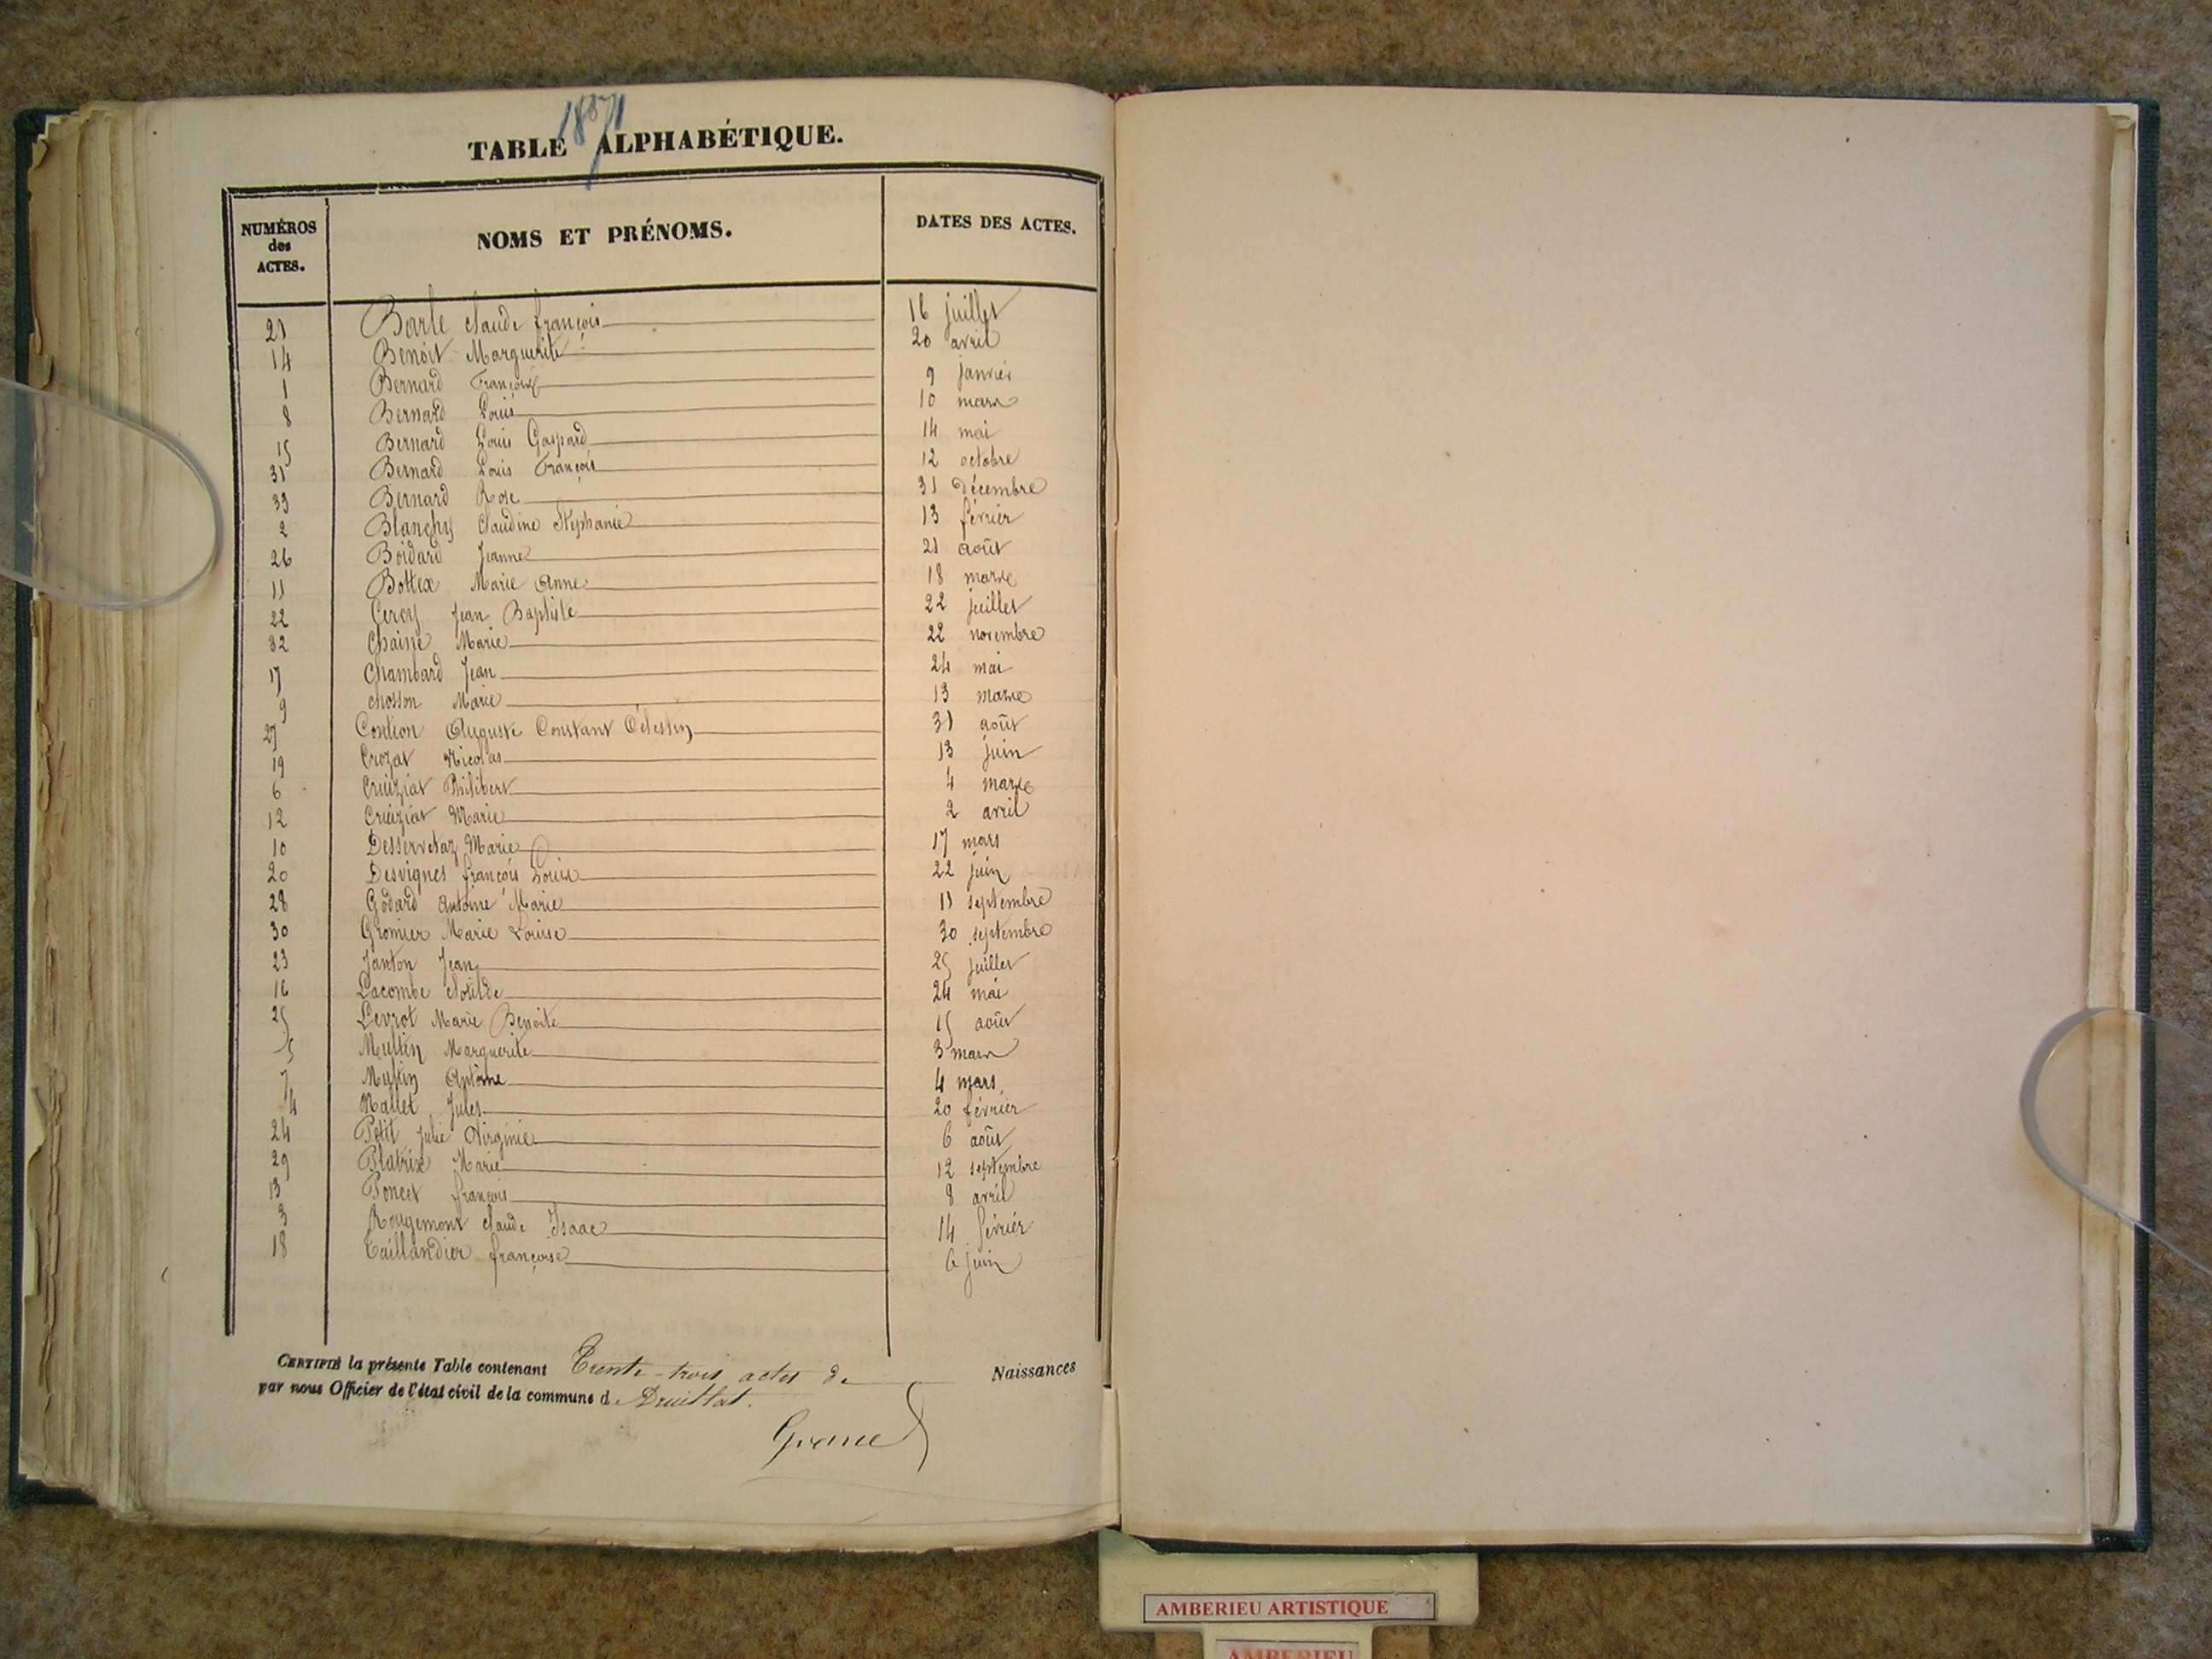 1871
TABLE ALPHABÉTIQUE.
NUMÉROS des ACTES. NOMS ET PRÉNOMS. DATES DES ACTES.
21 Barle Claude françois 16 juillet
14 Benoit Marguerite 20 avril
1 Bernard 9 janvier
8 Bernard Louis 10 mars
15 Bernard Louis Gaspard 14 mai
31 Bernard Louis François 12 octobre
33 Bernard Rose 31 décembre
2 Blanchy Claudine Stéphanie 13 février
26 Boidard Jeanne 21 août
11 Bottex Marie Anne 18 mars
22 Cercy Jean Baptiste 22 juillet
32 Chaine Marie 22 novembre
17 Chambard Jean 24 mai
9 chosson Marie 13 mars
27 Auguste Constant Célestin 31 août
19 Crozat Nicolas 13 juin
6 Cruiziat Philibert 4 mars
12 Cruiziat Marie 2 avril
10 Desservetaz Marie 17 mars
20 Desvignes françois Louis 22 juin
28 Godard Antoine Marie 11 septembre
30 Gromier Marie Louise 30 septembre
23 Janton Jean 25 juillet
16 Lacombe Clotilde 24 mai
25 Levrot Marie Benoite 15 août
5 Multin Marguerite 3 mars
7 Multin Antoine 4 mars
4 Nallet Jules 20 février
24 Petit Julie Virginie 6 août
29 Platrix Marie 12 septembre
13 Poncet françois 8 avril
3 Rougemont Claude Isaac 14 février
18 Taillandier françoise 6 juin
CERTIFIÉ la présente Table contenant Trente-trois actes de Naissances
par nous Officier de l'état civil de la commune d Druillat.
AMBERIEU ARTISTIQUE
AMBERIEU